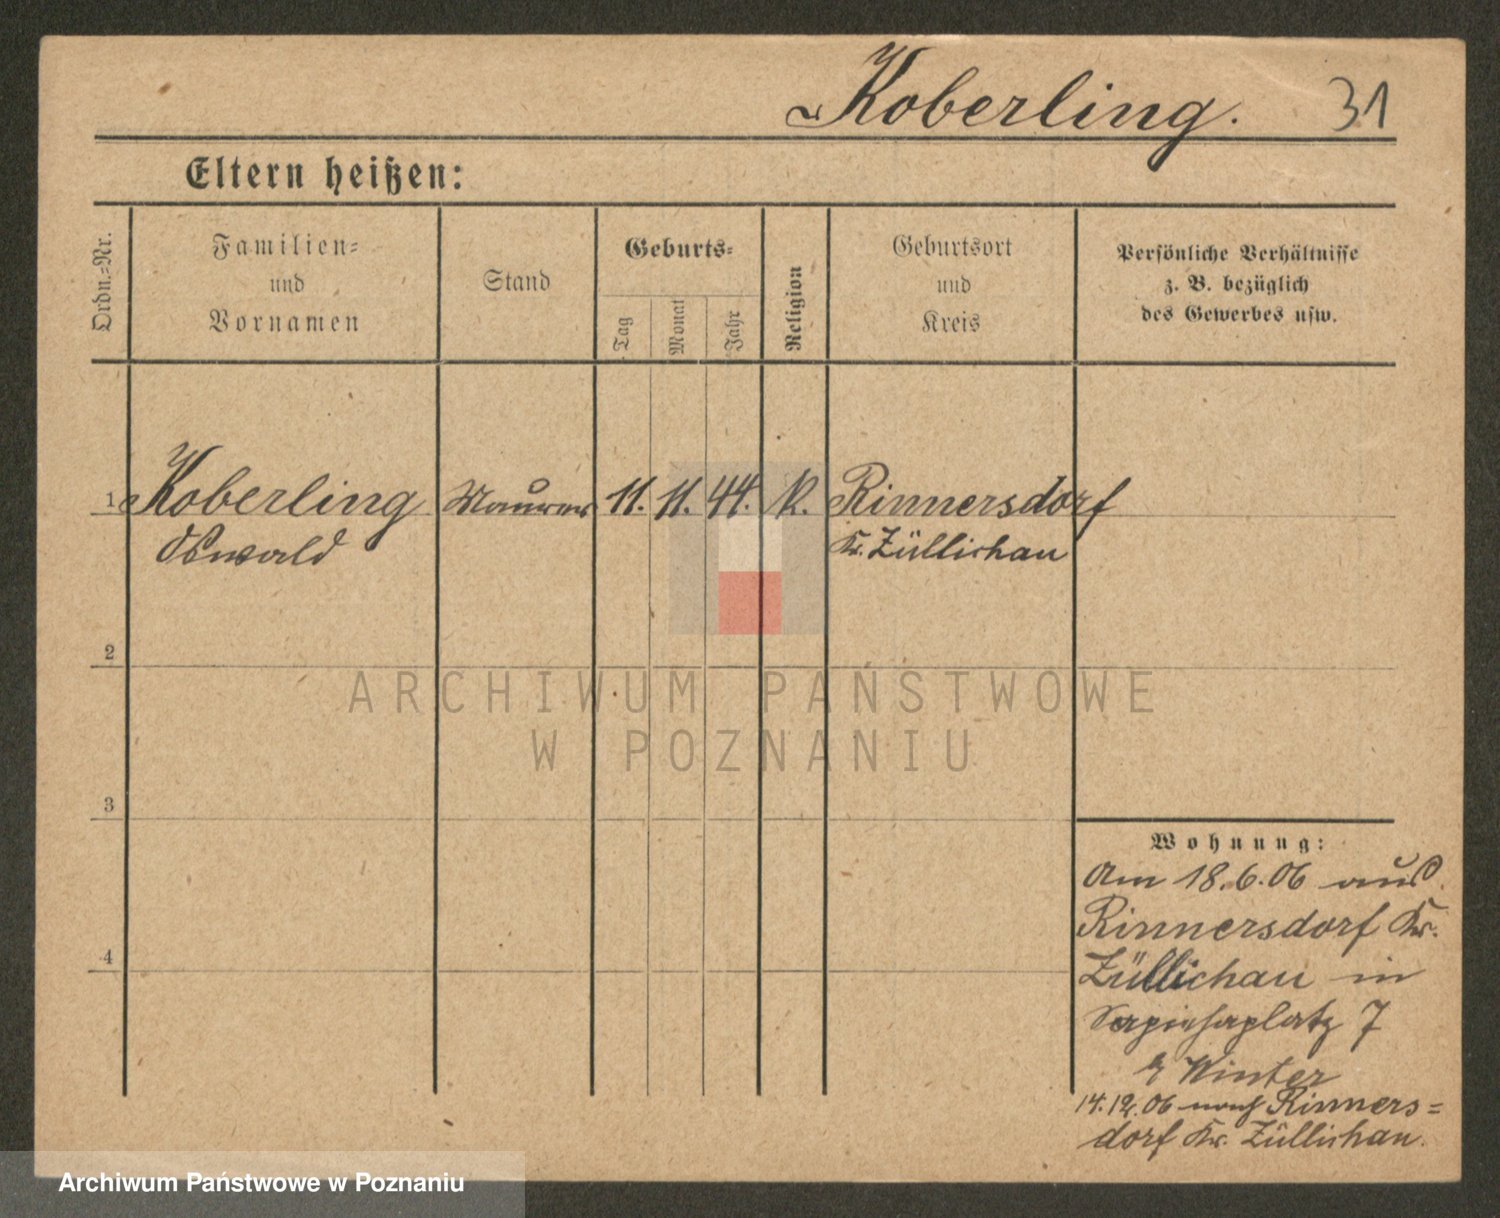 Koberling. 31
Eltern heißen:
Ordn.=Nr.
Familien=
und
Vornamen
Stand
Geburts=
Tag
Monat
Jahr
Religion
Geburtsort
und
Kreis
Persönliche Verhältnisse
z. B. bezüglich
des Gewerbes usw.
1 Koberling Maurer 11. 11. 44. k. Rinnersdorf
Oswald Kr. Züllichau
2
ARCHIWUM PAŃSTWOWE
W POZNANIU
3
Wohnung:
Am 18.6.06 aus
Rinnersdorf Kr.
4
Züllichau in
Sapiehaplatz 7
Winter
14.12.06 nach Rinners=
dorf Kr. Züllichau.
Archiwum Państwowe w Poznaniu